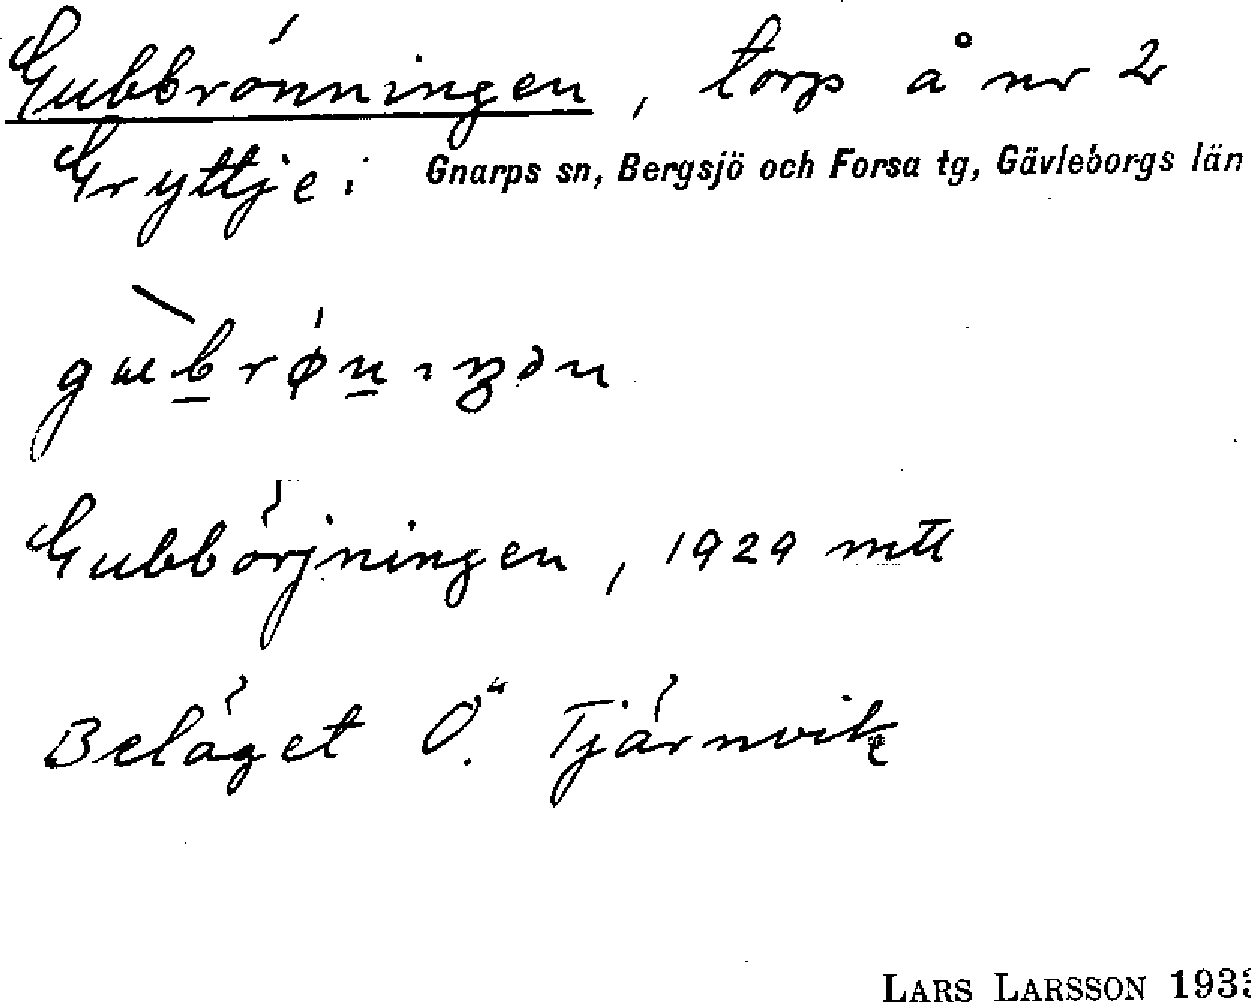 Gubbrönningen, torp å nr 2
Gryttje i Gnarps sn, Bergsjö och Forsa tg, Gävleborgs län
Gubbörjningen, 1929 mtl
Beläget Ö. Tjärnvik
LARS LARSSON